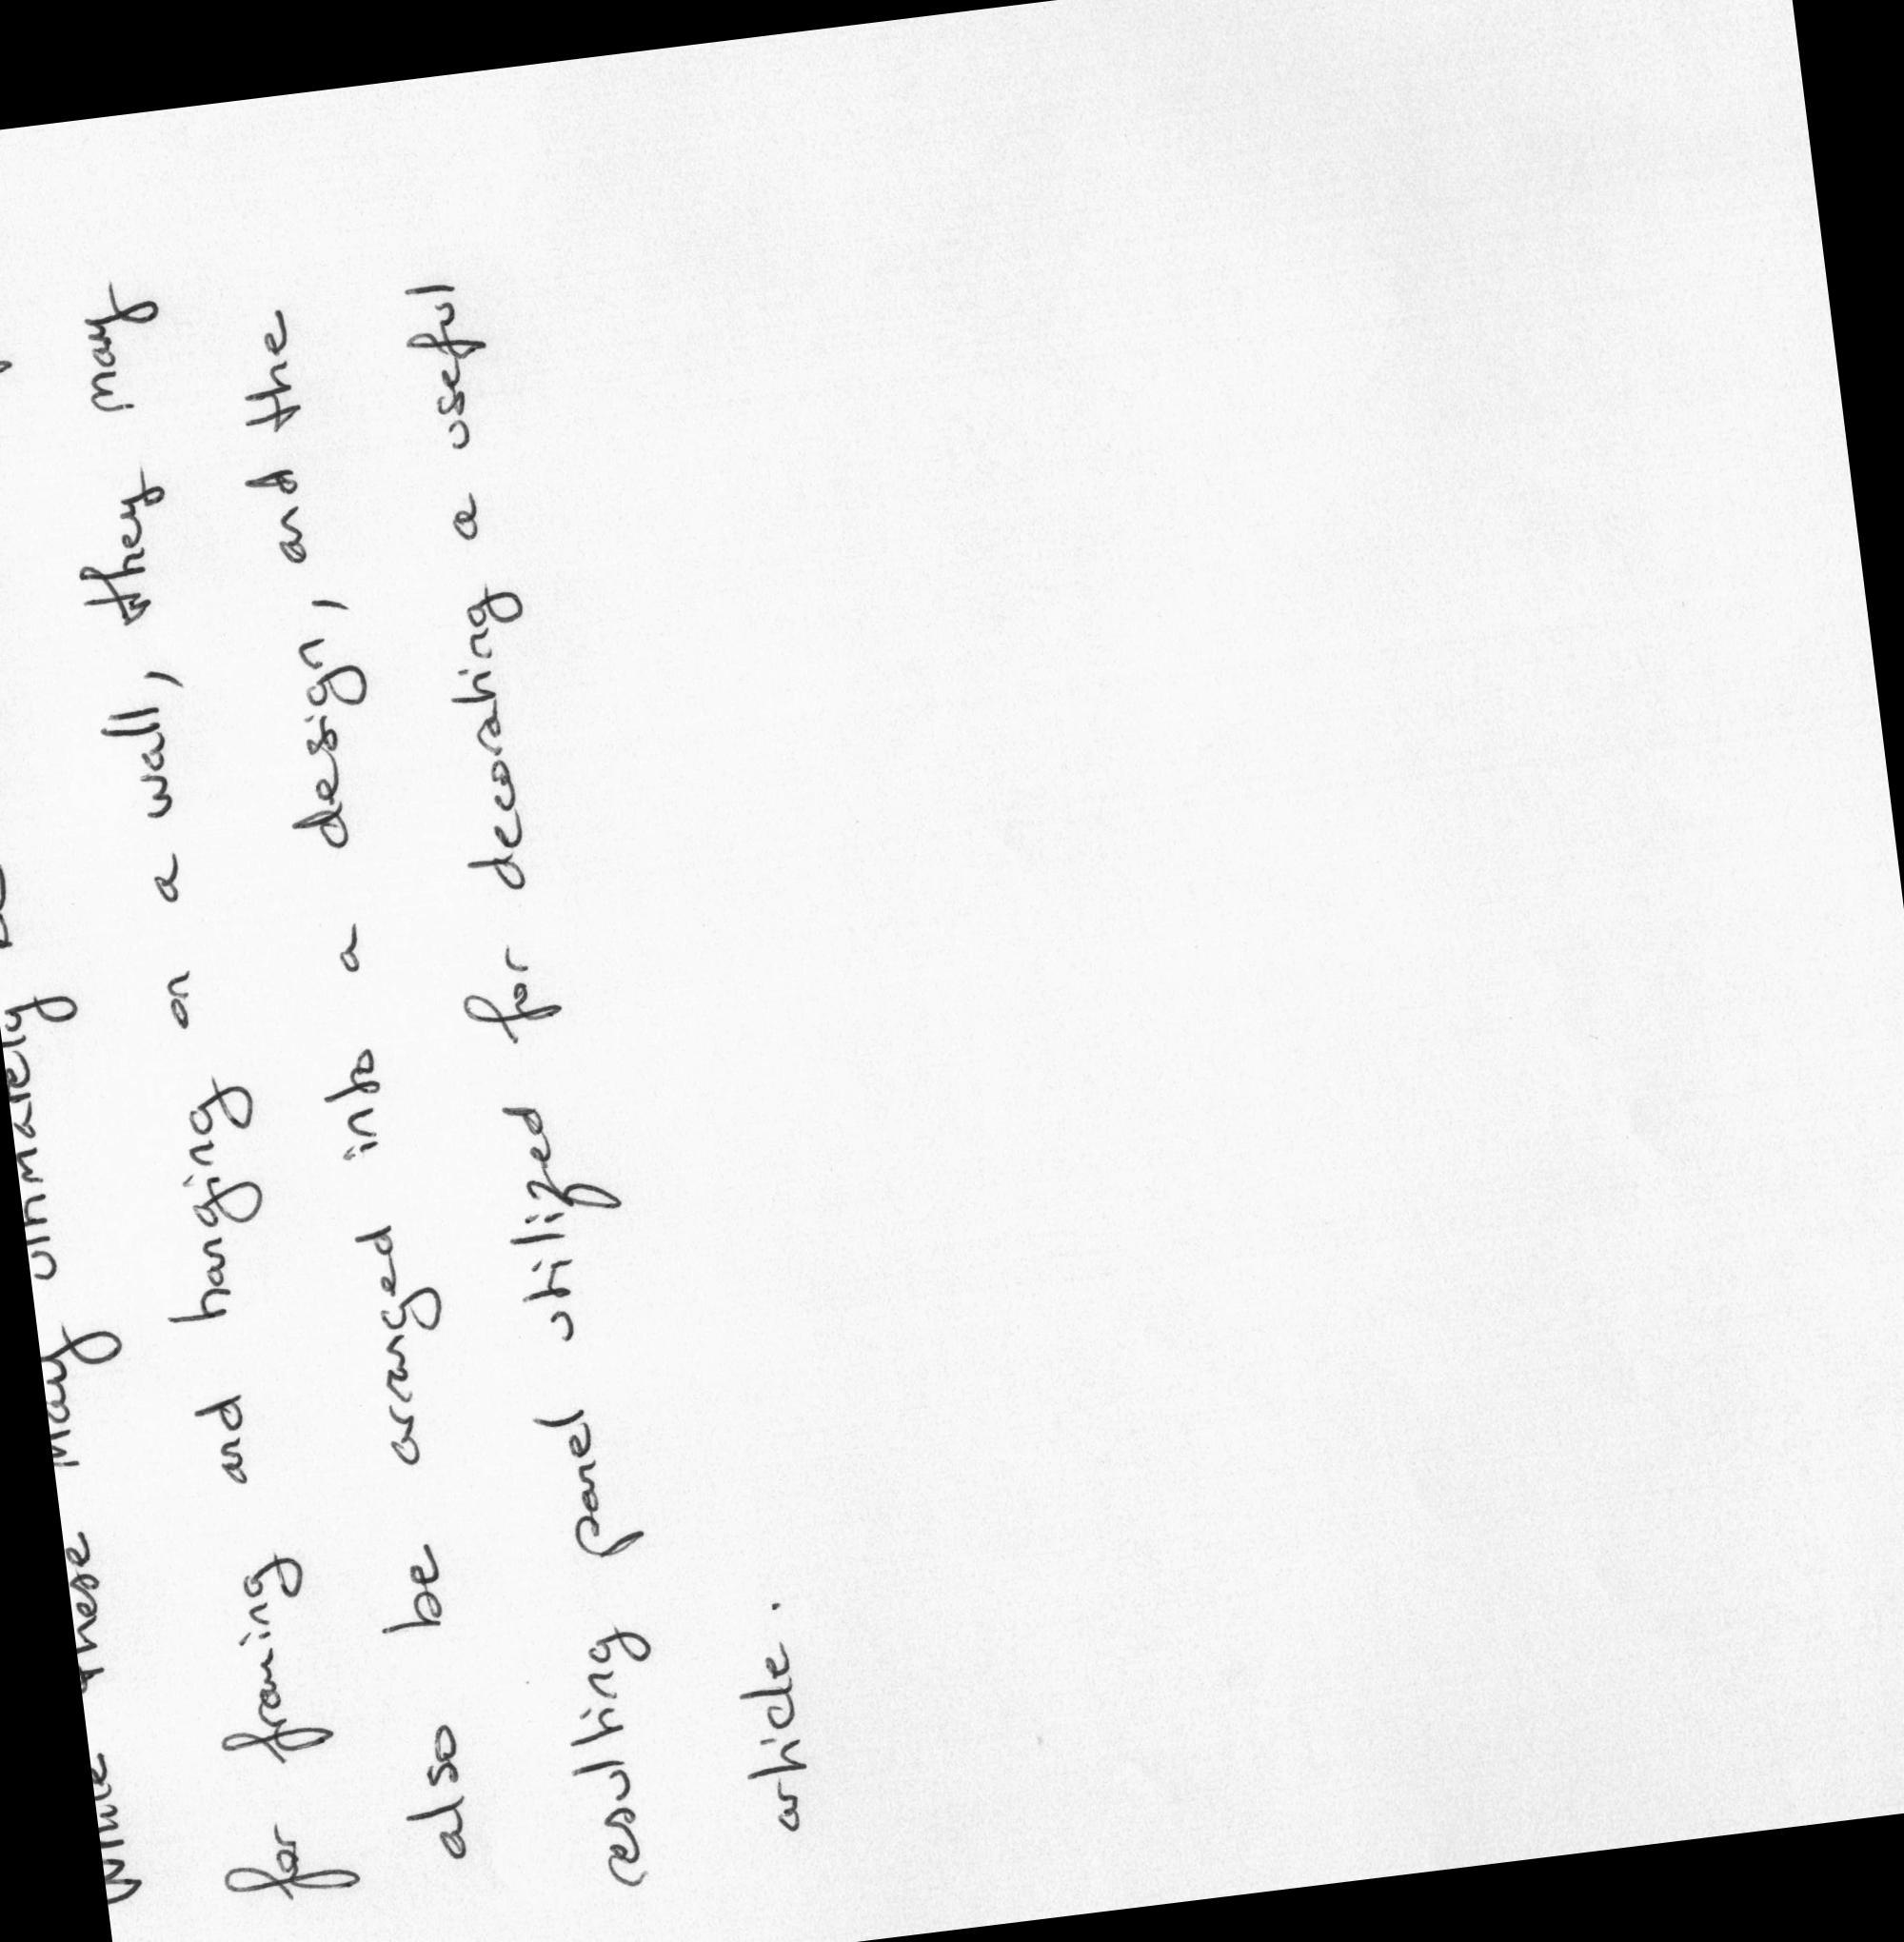 While these may ultimately be
for framing and hanging on a wall, they may
also be arranged into a design, and the
resulting panel utilized for decorating a useful
article.